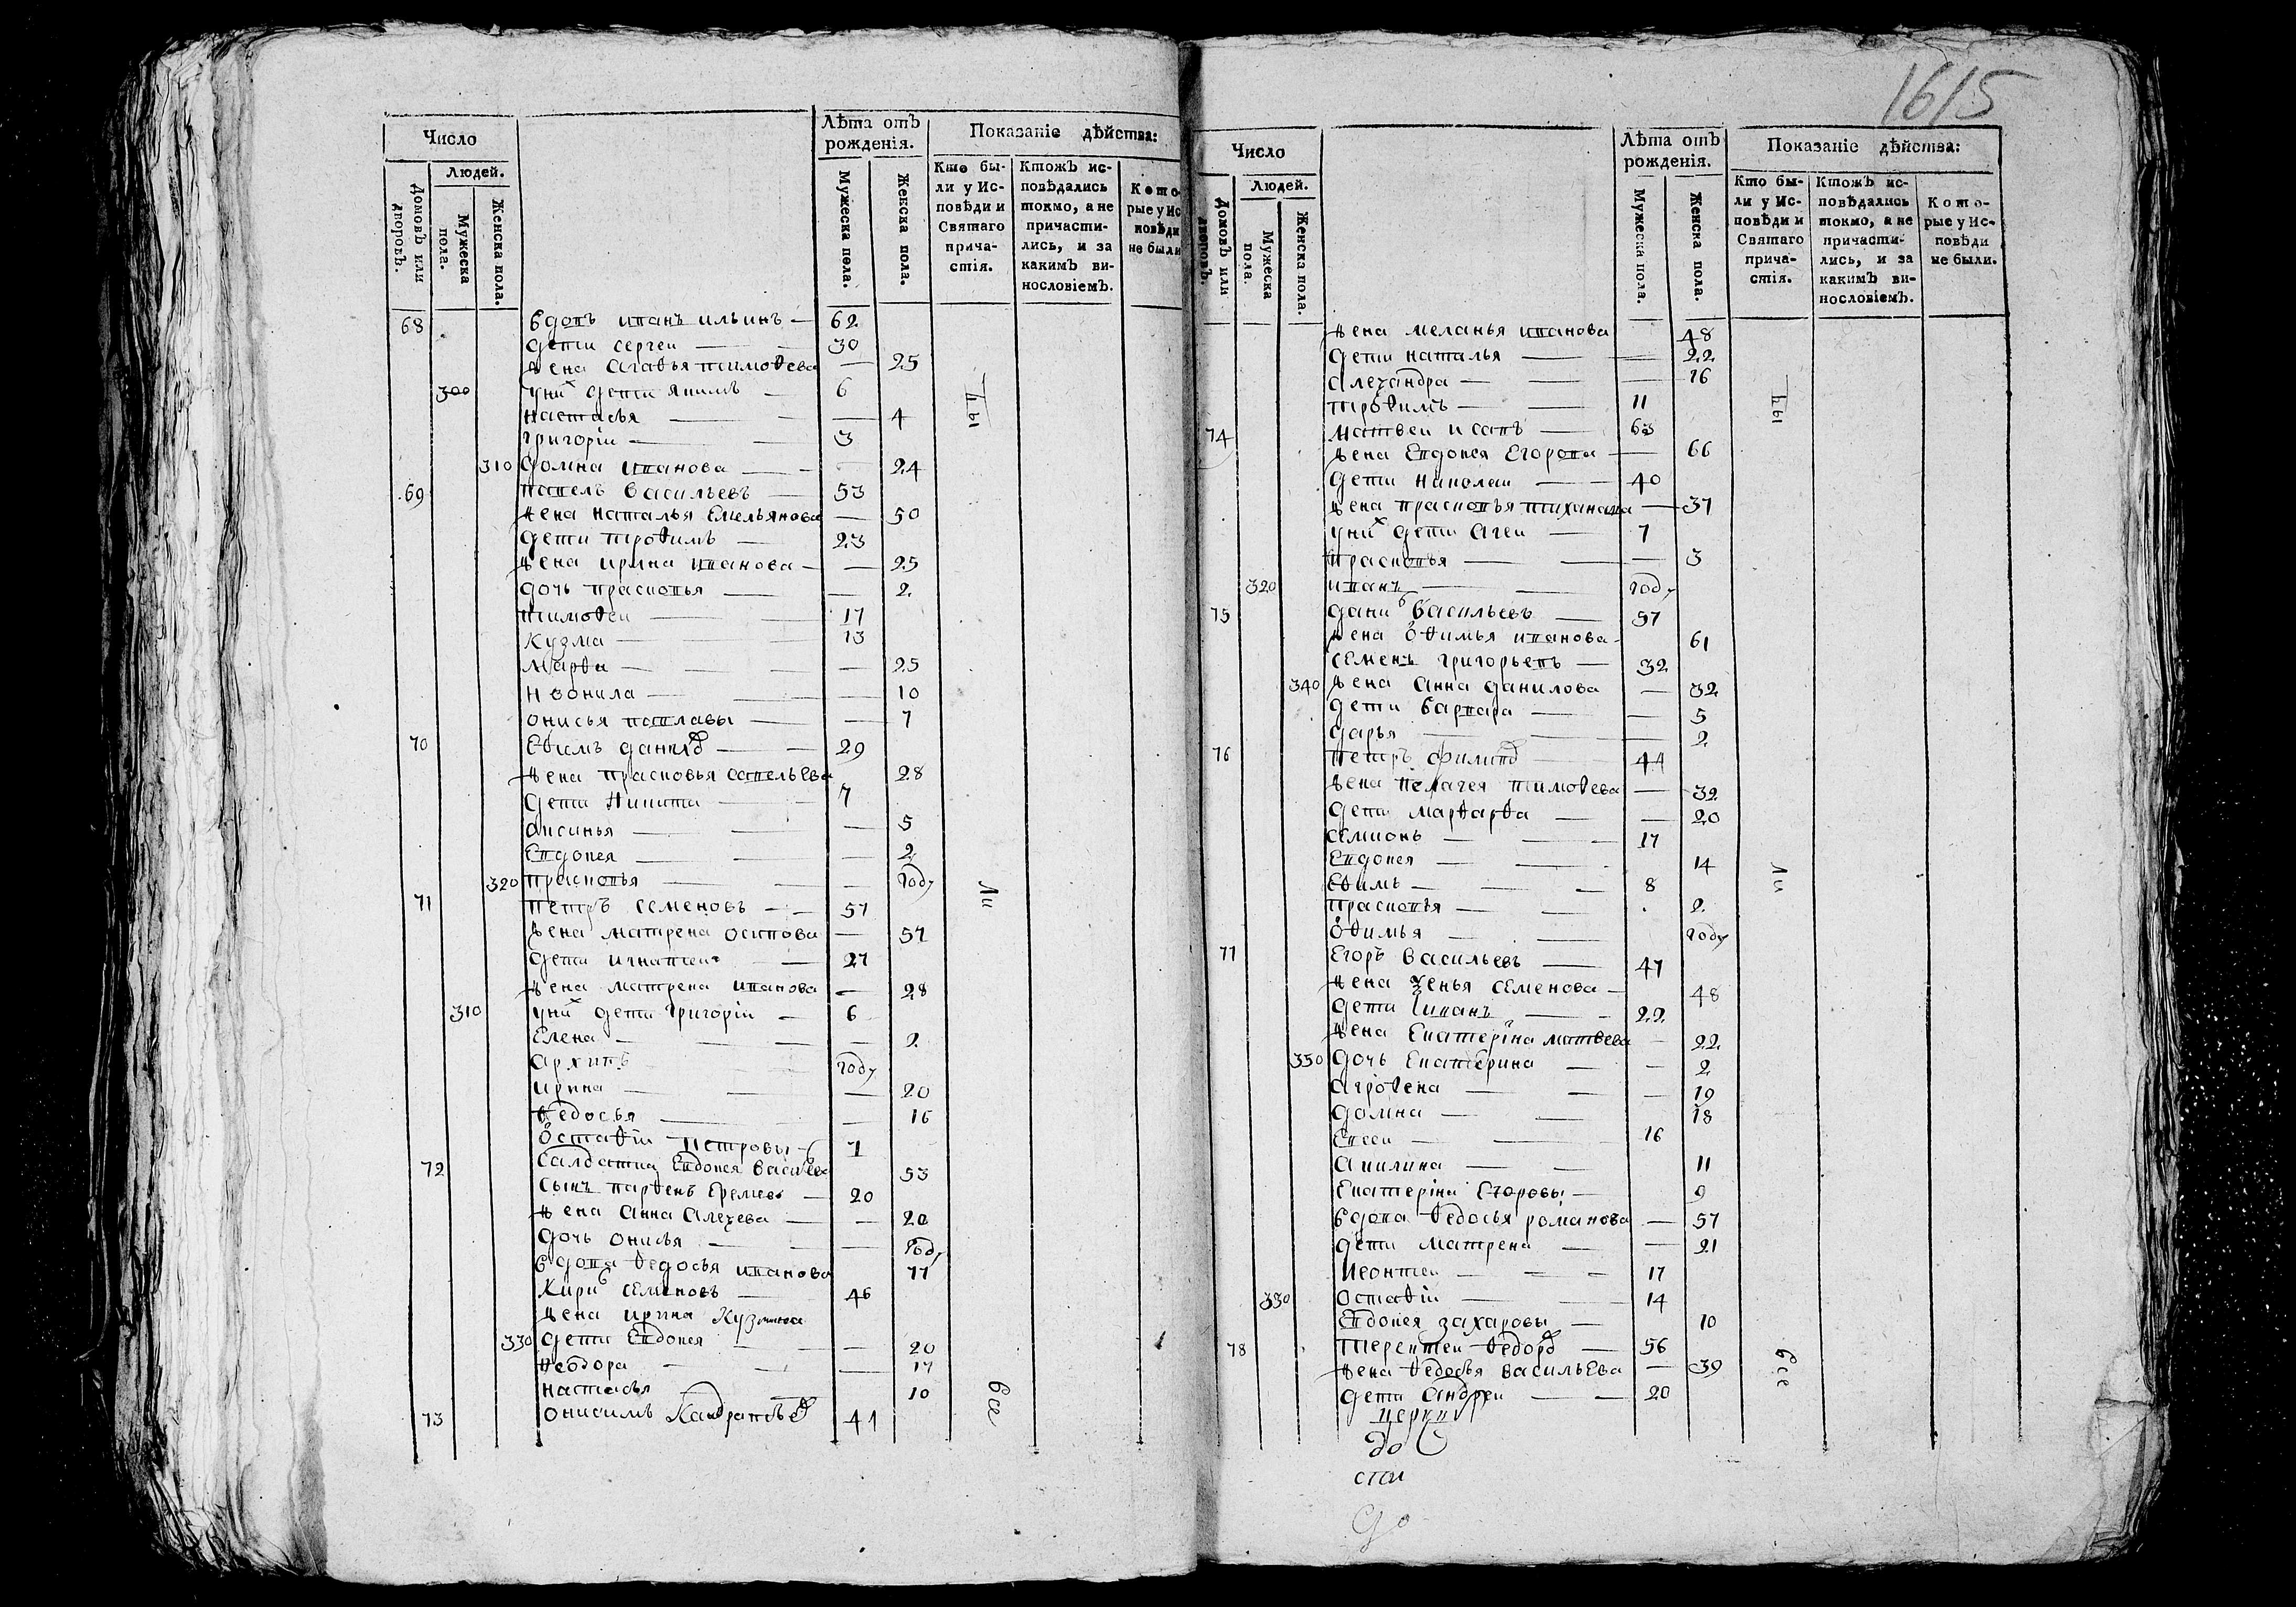 1615
Число
Лѣта отъ рожденія.
Показаніе дѣйства:
Людей.
Домовъ или дворовъ.
Мужеска пола.
Женска пола.
Мужеска пола.
Женска пола.
Кто бы-
ли у Ис-
повѣди и
Святаго
прича-
стія.
Ктожъ ис-
повѣдались
токмо, а не
причасти-
лись, и за
какимъ ви-
нословіемъ.
Кото-
рые у Ис-
повѣди
не были
68 вдовъ иванъ ильинъ — 62
дети сергеи — 30
жена агафья тимофева — 25
300 у них дети якимъ — 6
настасья — 4
григоріи — 3
310 домна иванова — 24
69 павелъ васильевъ — 53
жена наталья емельянова — 50
дети трофимъ — 23
жена ирина иванова — 25
дочь прасковья — 2
тимофеи — 17
кузма — 13
марфа — 25
неонила — 10
онисья павлавы — 7
70 ефимъ данилов — 29
жена прасковья савельева 28
дети никита — 7
аксинья — 5
евдокея — 2
320 прасковья — году
71 петръ семеновъ — 57
жена матрена осипова — 57
дети игнатеи — 27
жена матрена иванова — 28
310 у них дети григоріи — 6
елена — 2
архипъ году
ирина — 20
федосья — 16
остафіи петровы 7
72 салдатка евдокея васильева 53
сынъ парфенъ еремеевъ — 20
жена анна алексева — 20
дочь онисья — году
вдова федосья иванова 77
кирил семеновъ — 46
жена ирина кузмина
330 дети евдокея — 20
феодора — 17
настасья 10
73 онисимъ кандратьев 41
вы
ли
все
Число
Лѣта отъ рожденія.
Показаніе дѣйства:
Людей.
Домовъ или дворовъ.
Мужеска пола.
Женска пола.
Мужеска пола.
Женска пола.
Кто бы-
ли у Ис-
повѣди и
Святаго
прича-
стія.
Ктожъ ис-
повѣдались
токмо, а не
причасти-
лись, и за
какимъ ви-
нословіемъ.
Кото-
рые у Ис-
повѣди
не были.
жена меланья иванова 48
дети наталья — 22
александра — 16
трофимъ — 11
74 матвеи исаевъ — 63
жена евдокея егорова — 66
дети николаи — 40
жена прасковья тиханава — 37
у них дети агеи — 7
прасковья — 3
320 иванъ — году
75 данил васильевъ — 57
жена офимья иванова 61
семенъ григорьевъ — 32
340 жена анна данилова — 32
дети варвара — 5
дарья — 2
76 петръ филипов — 44
жена пелагея тимофева — 32
дети марфарфа — 20
семионъ — 17
евдокея — 14
ефимъ — 8
прасковья — 2
офимья — году
77 егоръ васильевъ — 47
жена ксенья семенова — 48
дети иванъ — 22
жена екатеріна матвева — 22
350 дочь екатерина — 2
агрофена — 19
домна — 18
евсеи — 16
акилина — 11
екатеріна егоровы — 9
вдова федосья романова — 57
дети матрена — 21
леонтеи — 17
330 остафіи — 14
евдокея захаровы — 10
78 терентеи федоров — 56
жена федосья васильева — 39
дети андреи — 20
церкви
до
ста
до
вы
ли
все